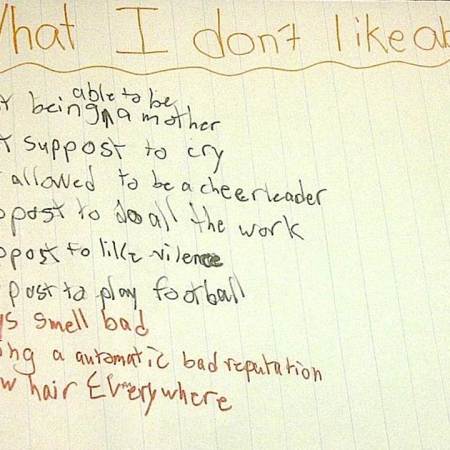 What I don't like ab
t being able to be a mother
t suppost to cry
allowed to be a cheerleader
post to do all the work
ppost to like vilence
post to play football
ys smell bad
ing a automatic bad reputation
w hair Everywhere